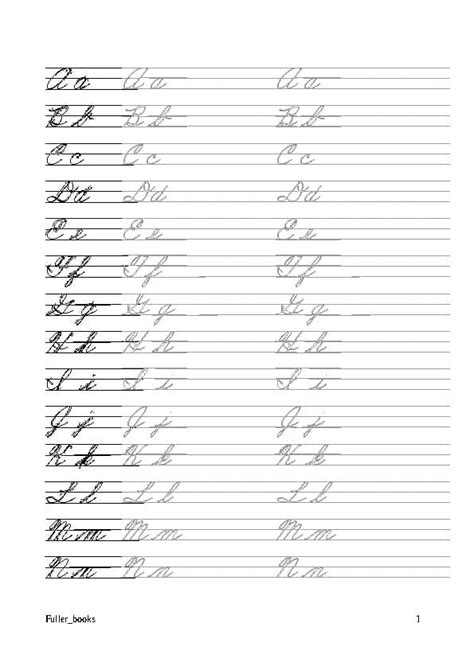 A a A a A a
B b B b B b
C c C c C c
D d D d D d
E e E e E e
F f F f F f
G g G g G g
H h H h H h
I i I i I i
J j J j J j
K k K k K k
L l L l L l
M m M m M m
N n N n N n
Fuller_books 1